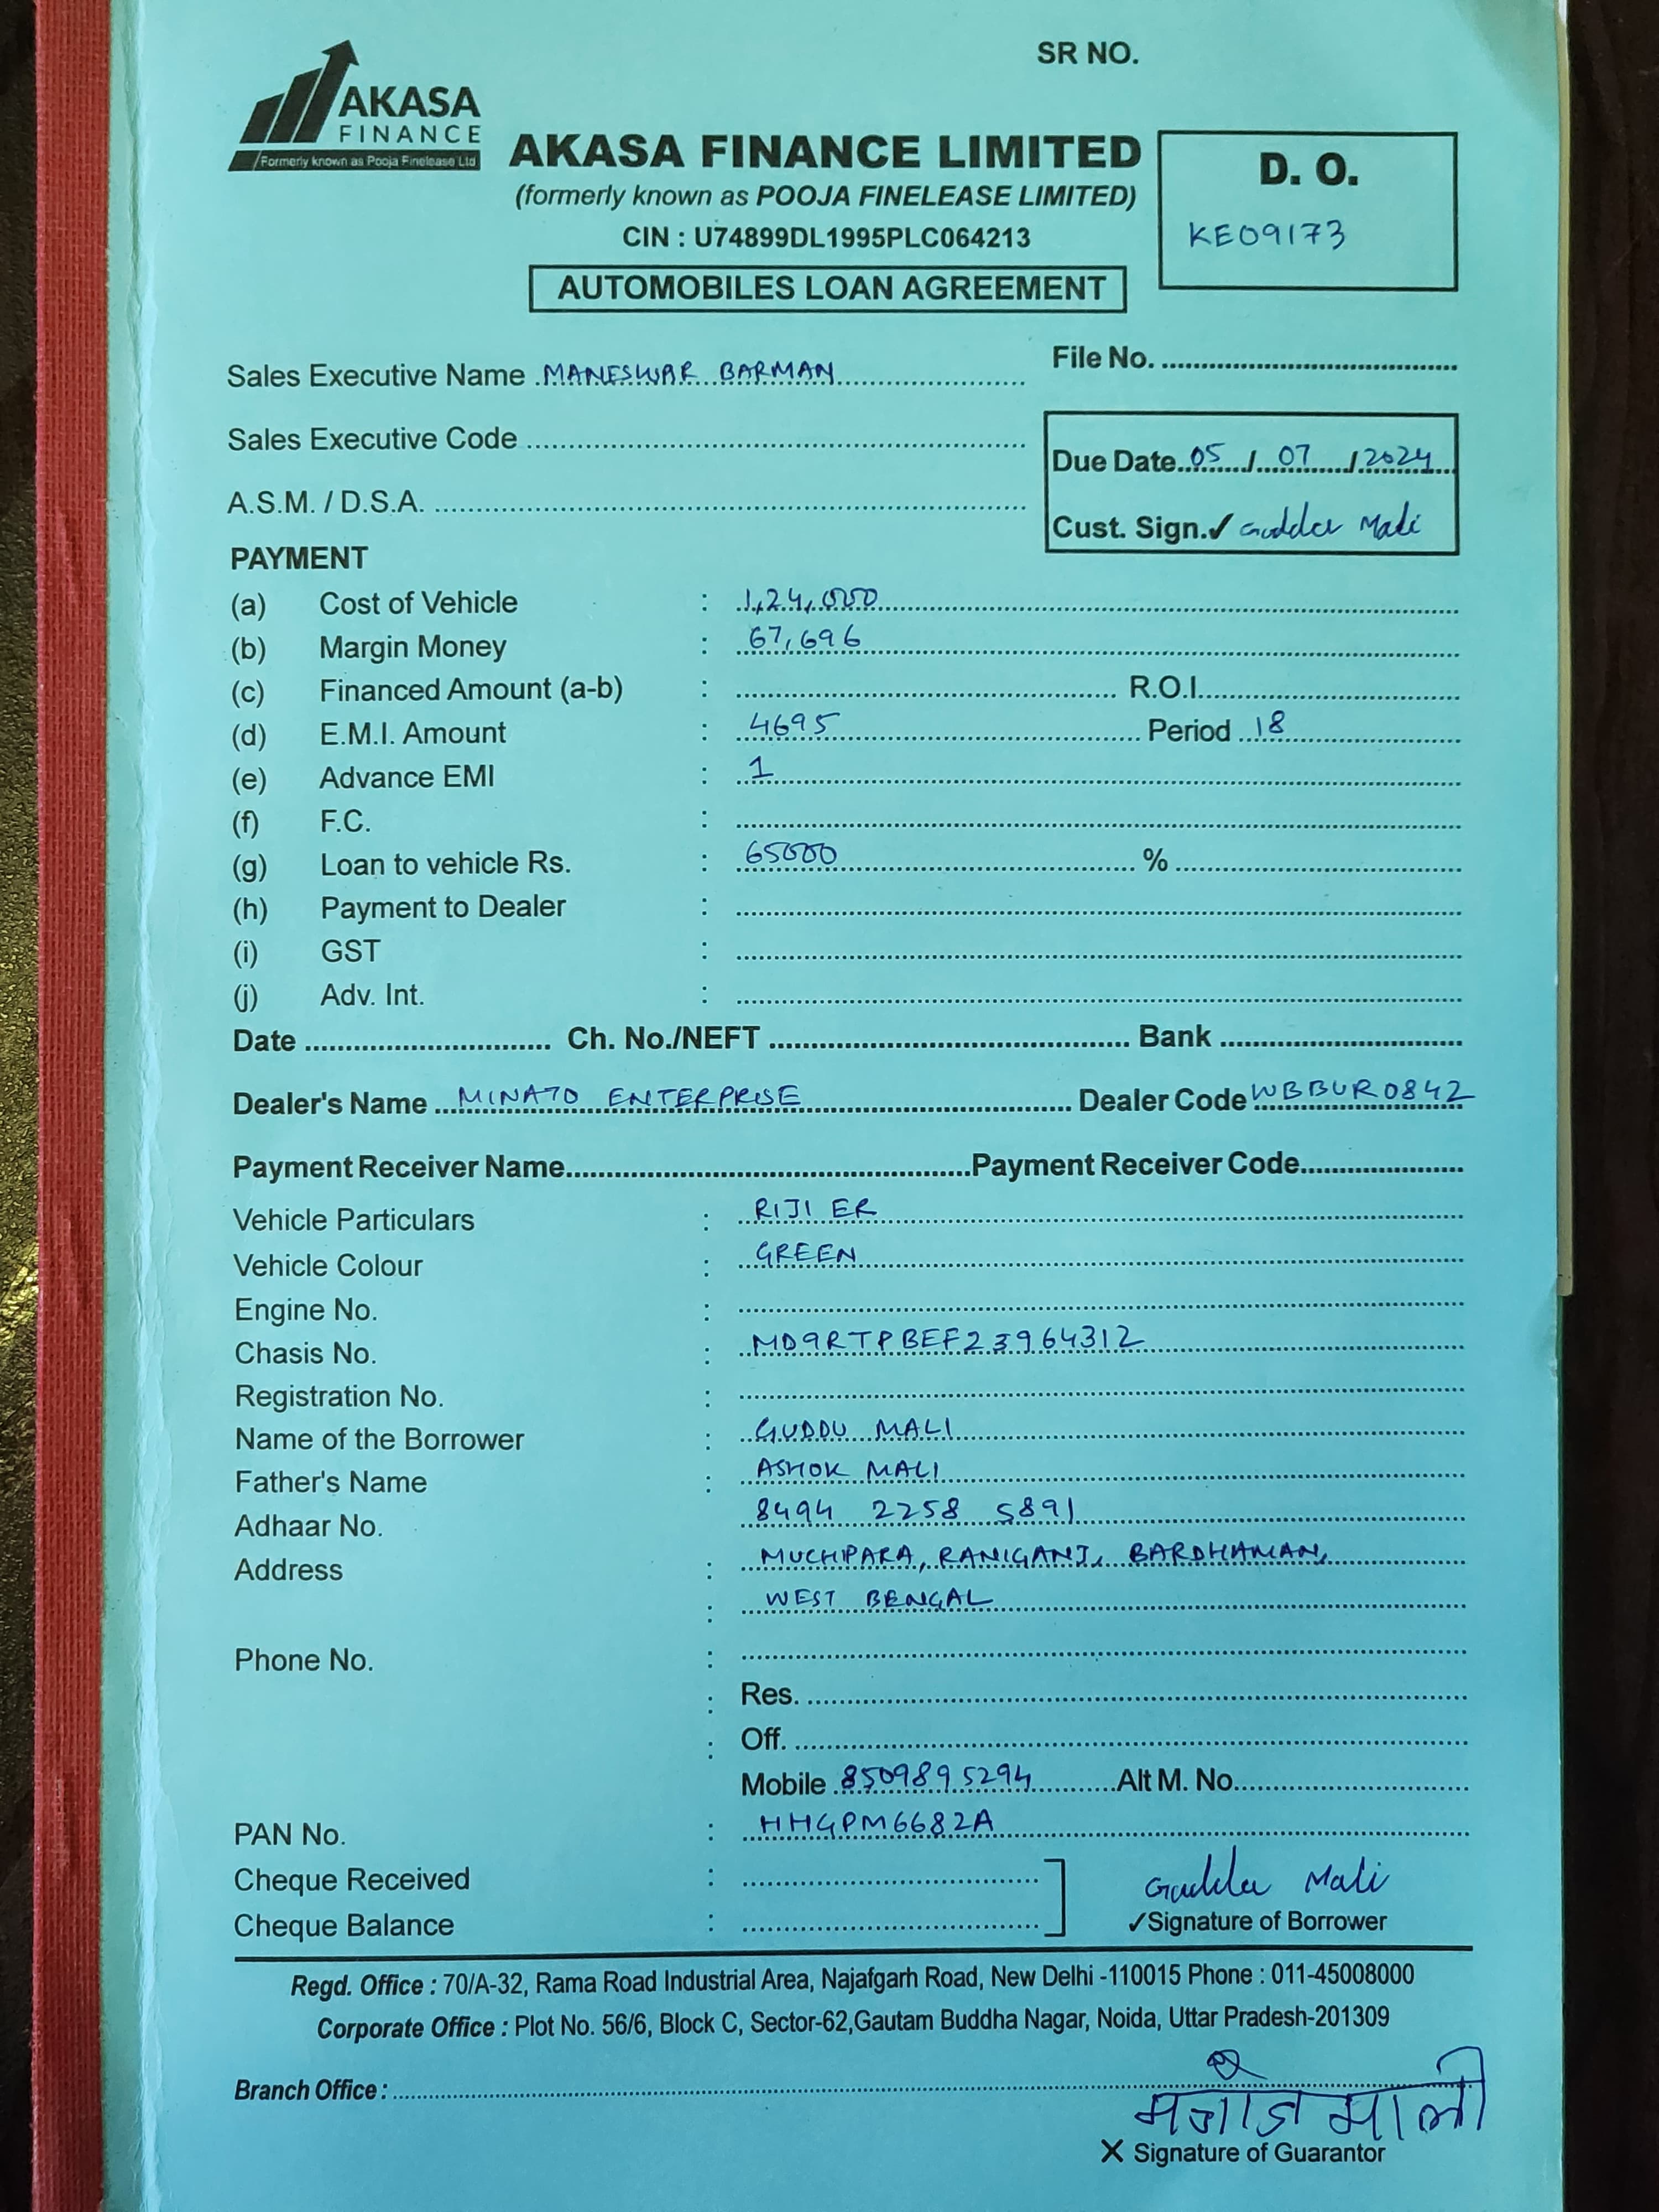 SR NO.
AKASA
FINANCE
Formerly known as Pooja Finelease Ltd
AKASA FINANCE LIMITED
(formerly known as POOJA FINELEASE LIMITED)
CIN : U74899DL1995PLC064213
AUTOMOBILES LOAN AGREEMENT
D. O.
KE09173
Sales Executive Name MANESWAR BARMAN
File No.
Sales Executive Code
Due Date 05 / 07 / 2024
A.S.M. / D.S.A.
Cust. Sign.✓ Guddu Mali
PAYMENT
(a) Cost of Vehicle : 1,24,000
(b) Margin Money : 67,696
(c) Financed Amount (a-b) : R.O.I.
(d) E.M.I. Amount : 4695 Period 18
(e) Advance EMI : 1
(f) F.C. :
(g) Loan to vehicle Rs. : 65000 %
(h) Payment to Dealer :
(i) GST :
(j) Adv. Int. :
Date Ch. No./NEFT Bank
Dealer's Name MINATO ENTERPRISE Dealer Code WBBUR0842
Payment Receiver Name Payment Receiver Code
Vehicle Particulars : RIJI ER
Vehicle Colour : GREEN
Engine No. :
Chasis No. : MD9RTPBEF23964312
Registration No. :
Name of the Borrower : GUDDU MALI
Father's Name : ASHOK MALI
Adhaar No. 8494 2258 5891
Address : MUCHIPARA, RANIGANJ, BARDHAMAN,
: WEST BENGAL
Phone No. :
: Res.
: Off.
Mobile 8509895294 Alt M. No.
PAN No. : HHGPM6682A
Cheque Received :
Guddu Mali
Cheque Balance :
✓Signature of Borrower
Regd. Office : 70/A-32, Rama Road Industrial Area, Najafgarh Road, New Delhi -110015 Phone : 011-45008000
Corporate Office : Plot No. 56/6, Block C, Sector-62,Gautam Buddha Nagar, Noida, Uttar Pradesh-201309
Branch Office :
माली
X Signature of Guarantor